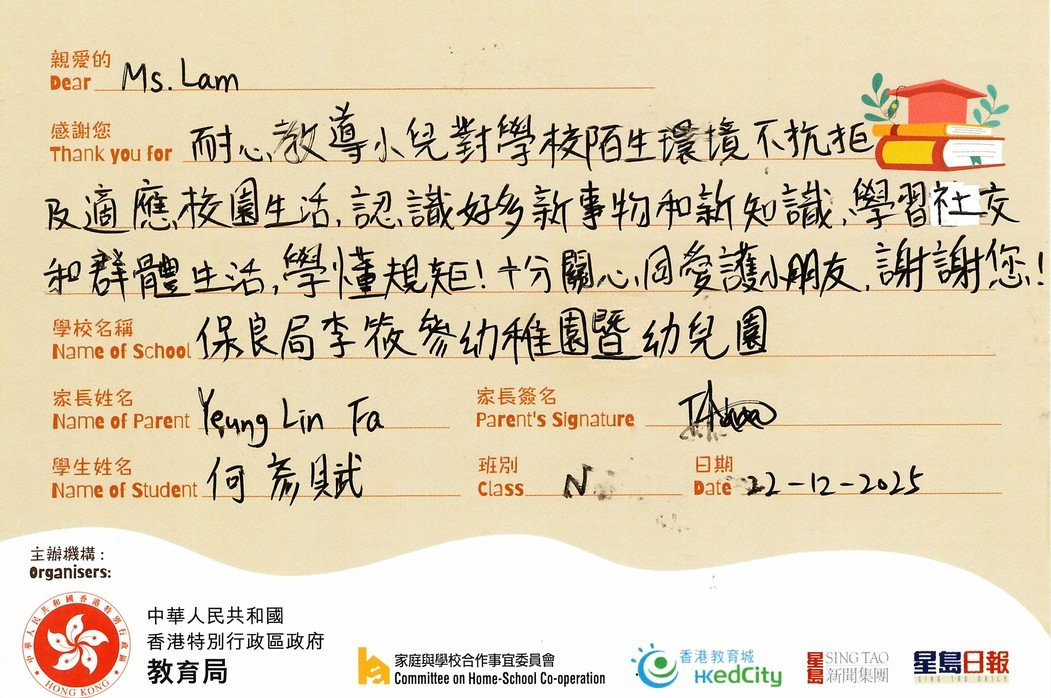 親愛的
Dear Ms. Lam
感謝您
Thank you for 耐心教導小兒對學校陌生環境不抗拒
及適應校園生活,認識好多新事物和新知識、學習社交
和群體生活,學懂規矩!十分關心同愛護小朋友,謝謝您!
學校名稱
Name of School 保良局李筱參幼稚園暨幼兒園
家長姓名 家長簽名
Name of Parent Yeung Lin Fa Parent's Signature
學生姓名 班別 日期
Name of Student 何彥賦 Class N Date 22-12-2025
主辦機構:
Organisers:
中華人民共和國香港特別行政區
HONG KONG
中華人民共和國
香港特別行政區政府
教育局
家庭與學校合作事宜委員會
Committee on Home-School Co-operation
香港教育城
HKedCity
星島 SING TAO
新聞集團
星島日報
SING TAO DAILY